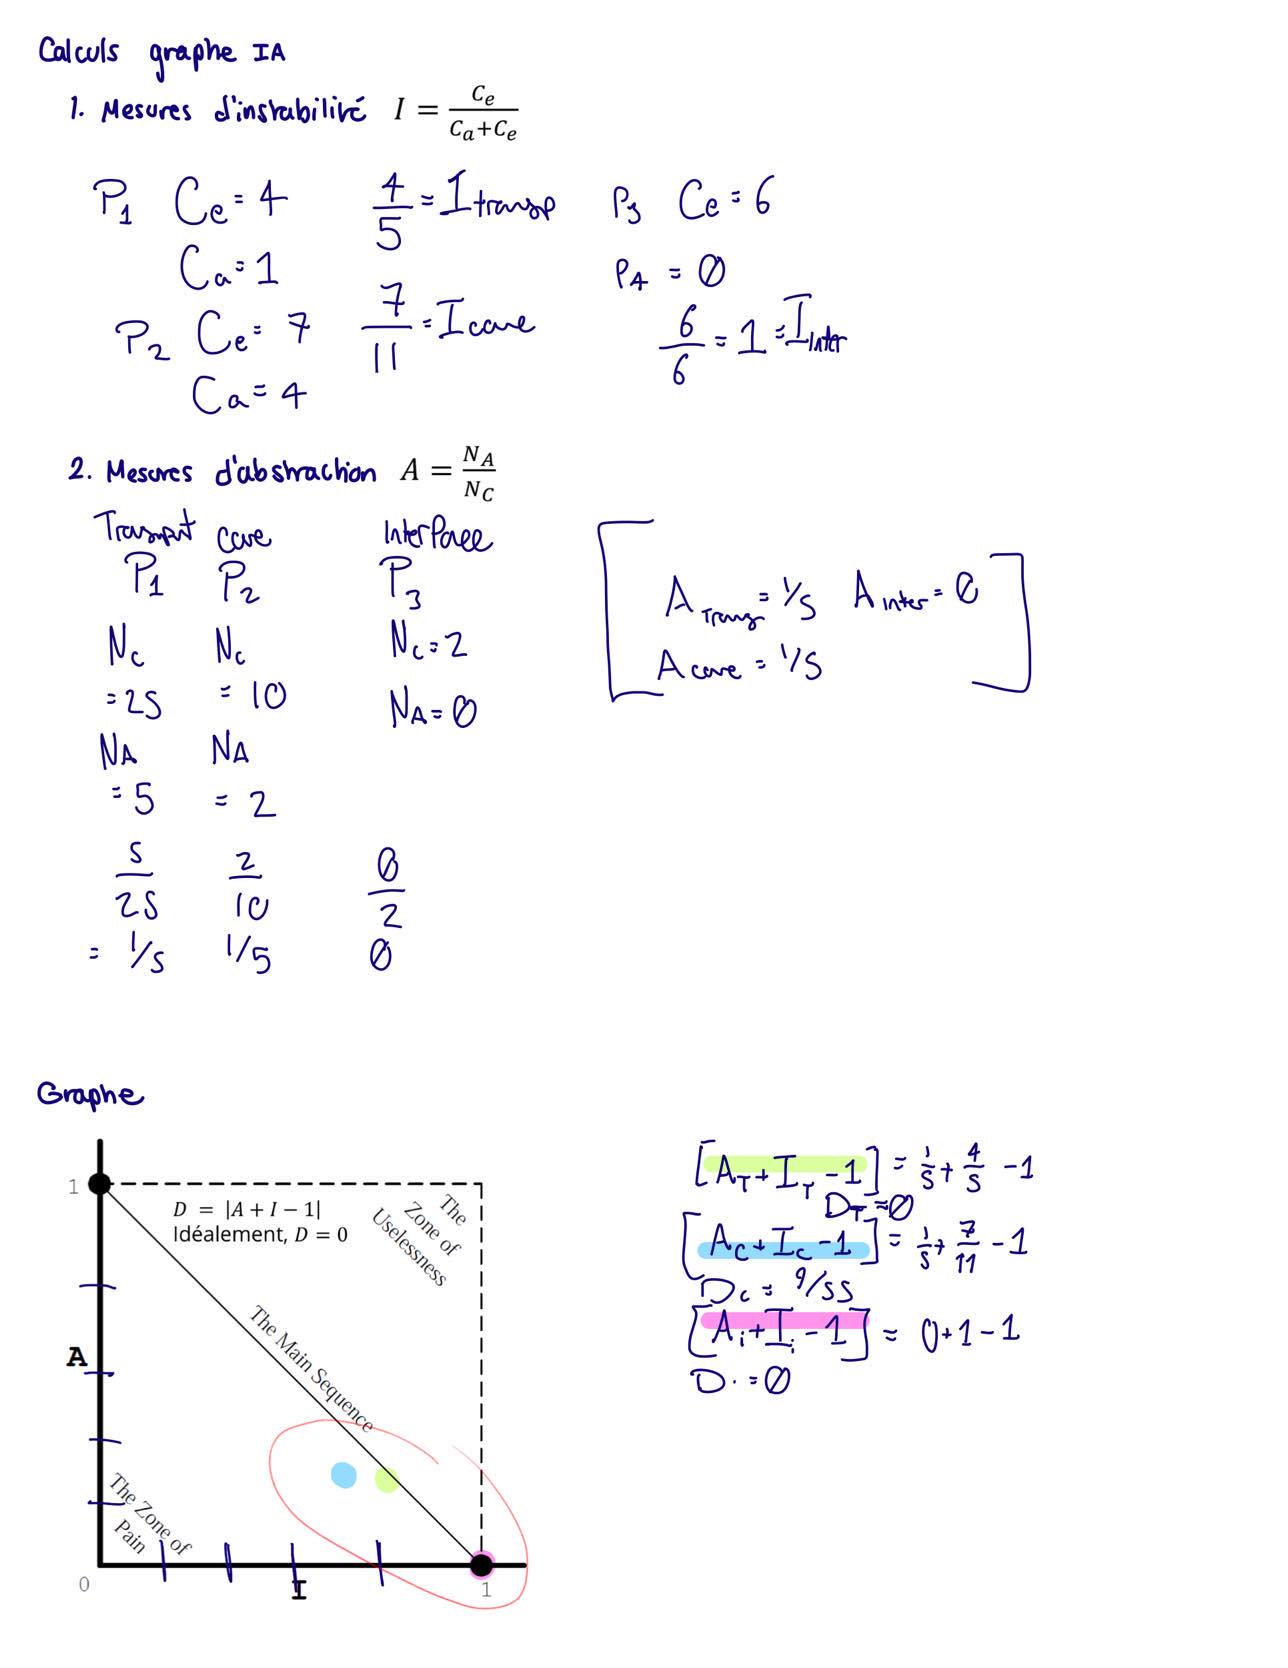 Calculs graphe IA
1. Mesures d'instabilité I = Ce / (Ca+Ce)
P1 Ce = 4 4/5 = I transp P3 Ce = 6
Ca = 1 PA = 0
P2 Ce = 7 7/11 = I core 6/6 = 1 = I Inter
Ca = 4
2. Mesures d'abstraction A = NA / NC
Transport Core Interface
P1 P2 P3
Nc Nc Nc = 2
= 25 = 10 NA = 0
NA NA
= 5 = 2
5/25 2/10 0/2
= 1/5 1/5 0
[A Trans = 1/5 A inter = 0
A core = 1/5]
Graphe
1
D = |A + I − 1|
Idéalement, D = 0
The Zone of Uselessness
The Main Sequence
A
The Zone of Pain
0
I
1
[AT + IT - 1] = 1/5 + 4/5 - 1
DT = 0
[AC + IC - 1] = 1/5 + 7/11 - 1
Dc = 9/55
[Ai + Ii - 1] = 0 + 1 - 1
D. = 0